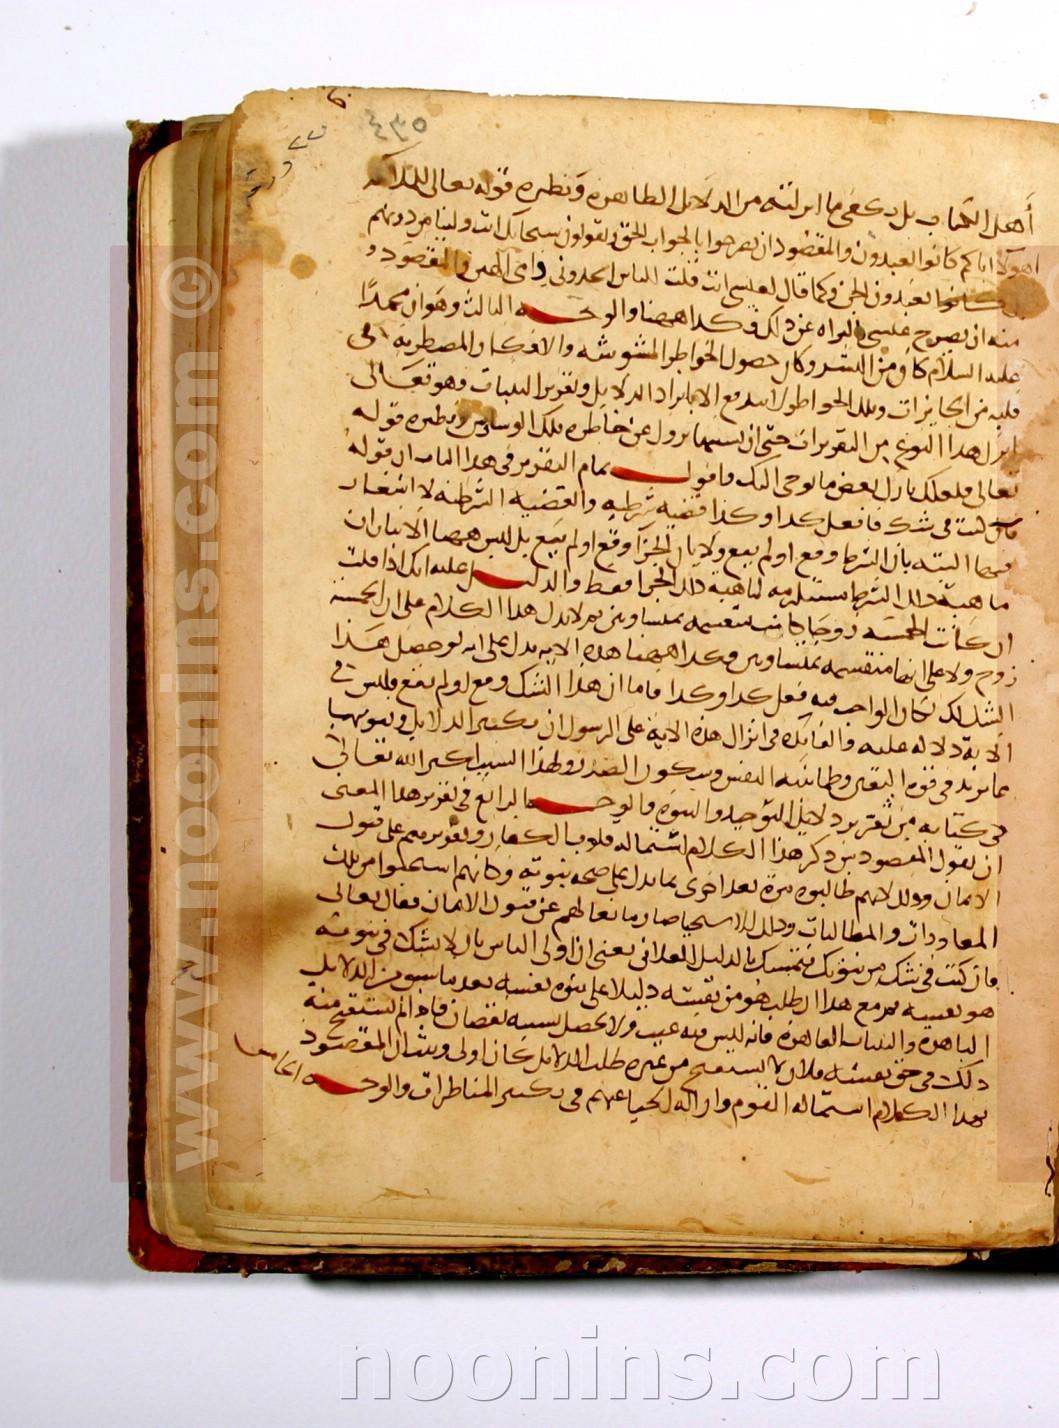 ٤٣٥
أهل الكتاب بل يكفي ما أنزلته من الدلائل الظاهرة ونظيره قوله تعالى للملائكة
أهؤلاء إياكم كانوا يعبدون والمقصود أن يصرحوا بالجواب الحق ويقولون سبحانك أنت ولينا من دونهم
بل كانوا يعبدون الجن وكما قال لعيسى أأنت قلت للناس اتخذوني وأمي إلهين والمقصود
منه أن يصرح عيسى بالبراءة عن ذلك فكذا ههنا والوجه الثالث وهو أن محمدا
عليه السلام كان من البشر وكان حصول الخواطر المشوشة والأفكار المضطربة في
قلبه من الجايزات وتلك الخواطر لا تندفع إلا بإيراد الدلايل وتقرير البينات وهو تعالى
أنزل هذا النوع من التقريرات حتى أن بسببها يزول عن خاطره تلك الوساوس ونظيره قوله
تعالى فلعلك تارك بعض ما يوحى إليك وأقول تمام التقرير في هذا الباب إن قوله
فإن كنت في شك فافعل كذا وكذا قضية شرطية والقضية الشرطية لا إشعار
فيها البتة بأن الشرط وقع أو لم يقع ولا بأن الجزا وقع أو لم يقع بل ليس ههنا إلا بيان أن
ماهية ذلك الشرط مستلزمة لماهية ذلك الجزا فقط والدليل عليه أنك إذا قلت
إن كانت الخمسة زوجا كانت منقسمة بمتساويين فهو لا يدل هذا الكلام على أن الخمسة
زوج ولا على أنها منقسمة بمتساويين فكذا ههنا هذه الآية يدل على أنه لو حصل هذا
الشك لكان الواجب فيه فعل كذا وكذا فأما أن هذا الشك وقع أو لم يقع فليس في
الآية دلالة عليه والفايدة في إنزال هذه الآية على الرسول أن تكثير الدلايل وتقويتها
مما يزيد في قوة اليقين وطمأنينة النفس وسكون الصدر ولهذا السبب أكثر الله تعالى
في كتابه من تقرير دلايل التوحيد والنبوة والوجه الرابع في تقرير هذا المعنى
أن نقول المقصود من ذكر هذا الكلام استمالة قلوب الكفار وتقريبهم على قبول
الإيمان وذلك لأنهم طالبوه مرة بعد أخرى بما يدل على صحة نبوته وكأنهم استحيوا من تلك
المعاودات والمطالبات وذلك الاستحيا صار مانعا لهم عن قبول الإيمان فقال تعالى
فإن كنت في شك من نبوتك فتمسك بالدليل الفلاني يعني أن أولى الناس بأن لا يشك في نبوته
هو نفسه ثم مع هذا إن طلب هو من نفسه دليلا على نبوة نفسه بعد ما سبق من الدلايل
الباهرة والبينات القاهرة فإنه ليس فيه عيب ولا يحصل بسببه نقصان فإذا لم يستقبح منه
ذلك في حق نفسه فلأن لا يستقبح من غيره طلب الدلايل كان أولى وثبت أن المقصود
بهذا الكلام استمالة القوم وإزالة الحيا عنهم في تكثير المناظرات والوجه الخامس
www.noonins.com ©
noonins.com